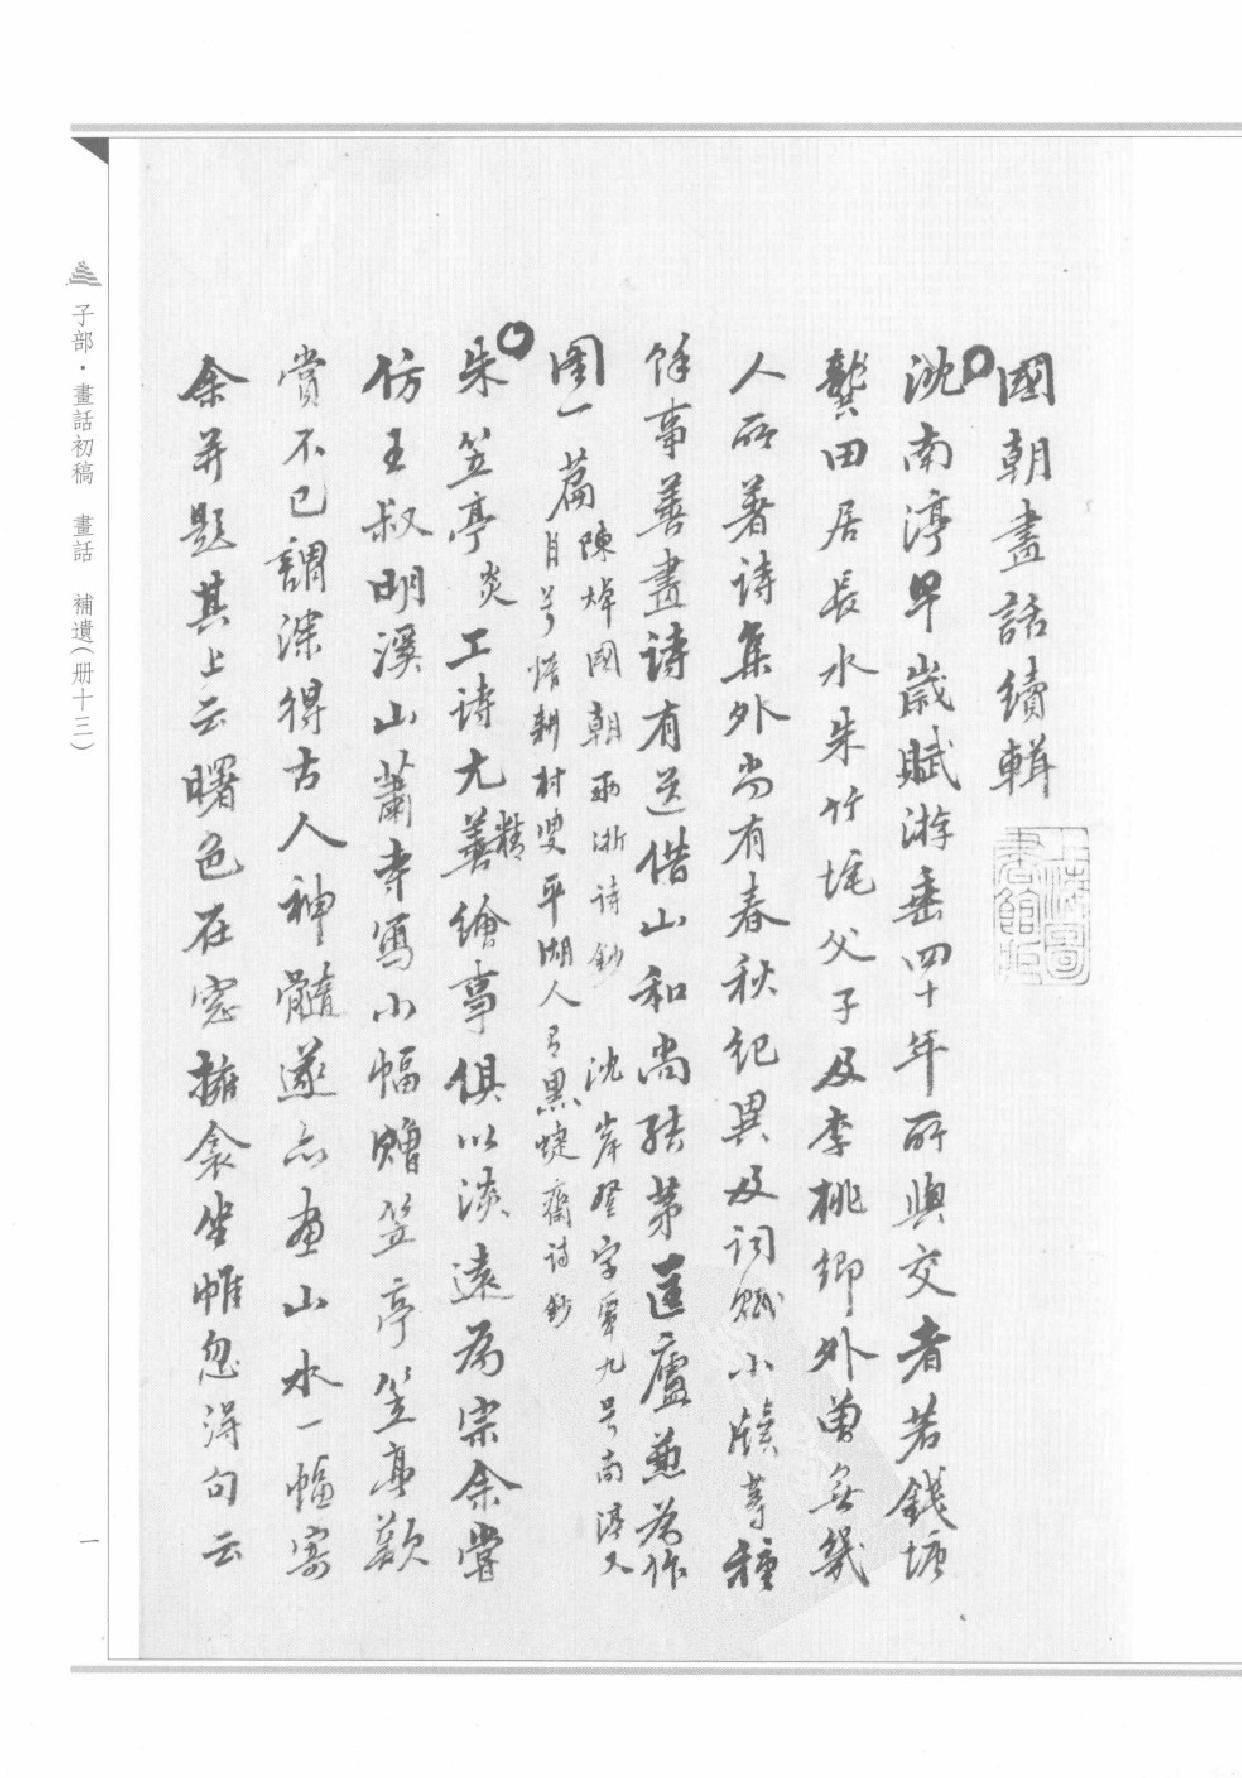 國朝畫話續輯
沈南渟早歲賦游垂四十年所與交者若錢塘
龔田居長水朱竹垞父子及李桃鄉外曾無幾
人所著詩集外尚有春秋紀異及詞賦小牘等種
餘事善畫詩有送借山和尚結茅匡廬兼為作
圖一篇
陳焯國朝兩浙詩鈔 沈岸登字覃九号南渟又
自号惰耕村叟平湖人有黑蜨齋詩鈔
朱笠亭炎工詩尤善精繪事俱以淡遠為宗余嘗
仿王叔明溪山蕭寺寫小幅贈笠亭笠亭歎
賞不已謂深得古人神髓遂亦畫山水一幅寄
余并題其上云曙色在窓擁衾坐帷忽得句云
上海圖書館所
子部·畫話初稿 畫話 補遺（册十三）
一